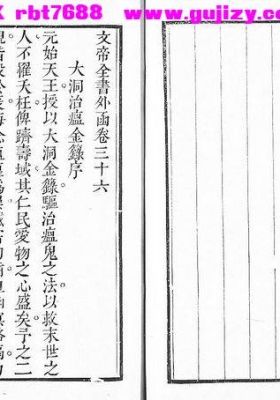 rbt7688 www.gujizy.c
文帝全書外函卷三十六
大洞治瘟金籙序
元始天王授以大洞金籙驅治瘟鬼之法以救末世之
人不罹夭枉俾躋壽域其仁民愛物之心盛矣予之二